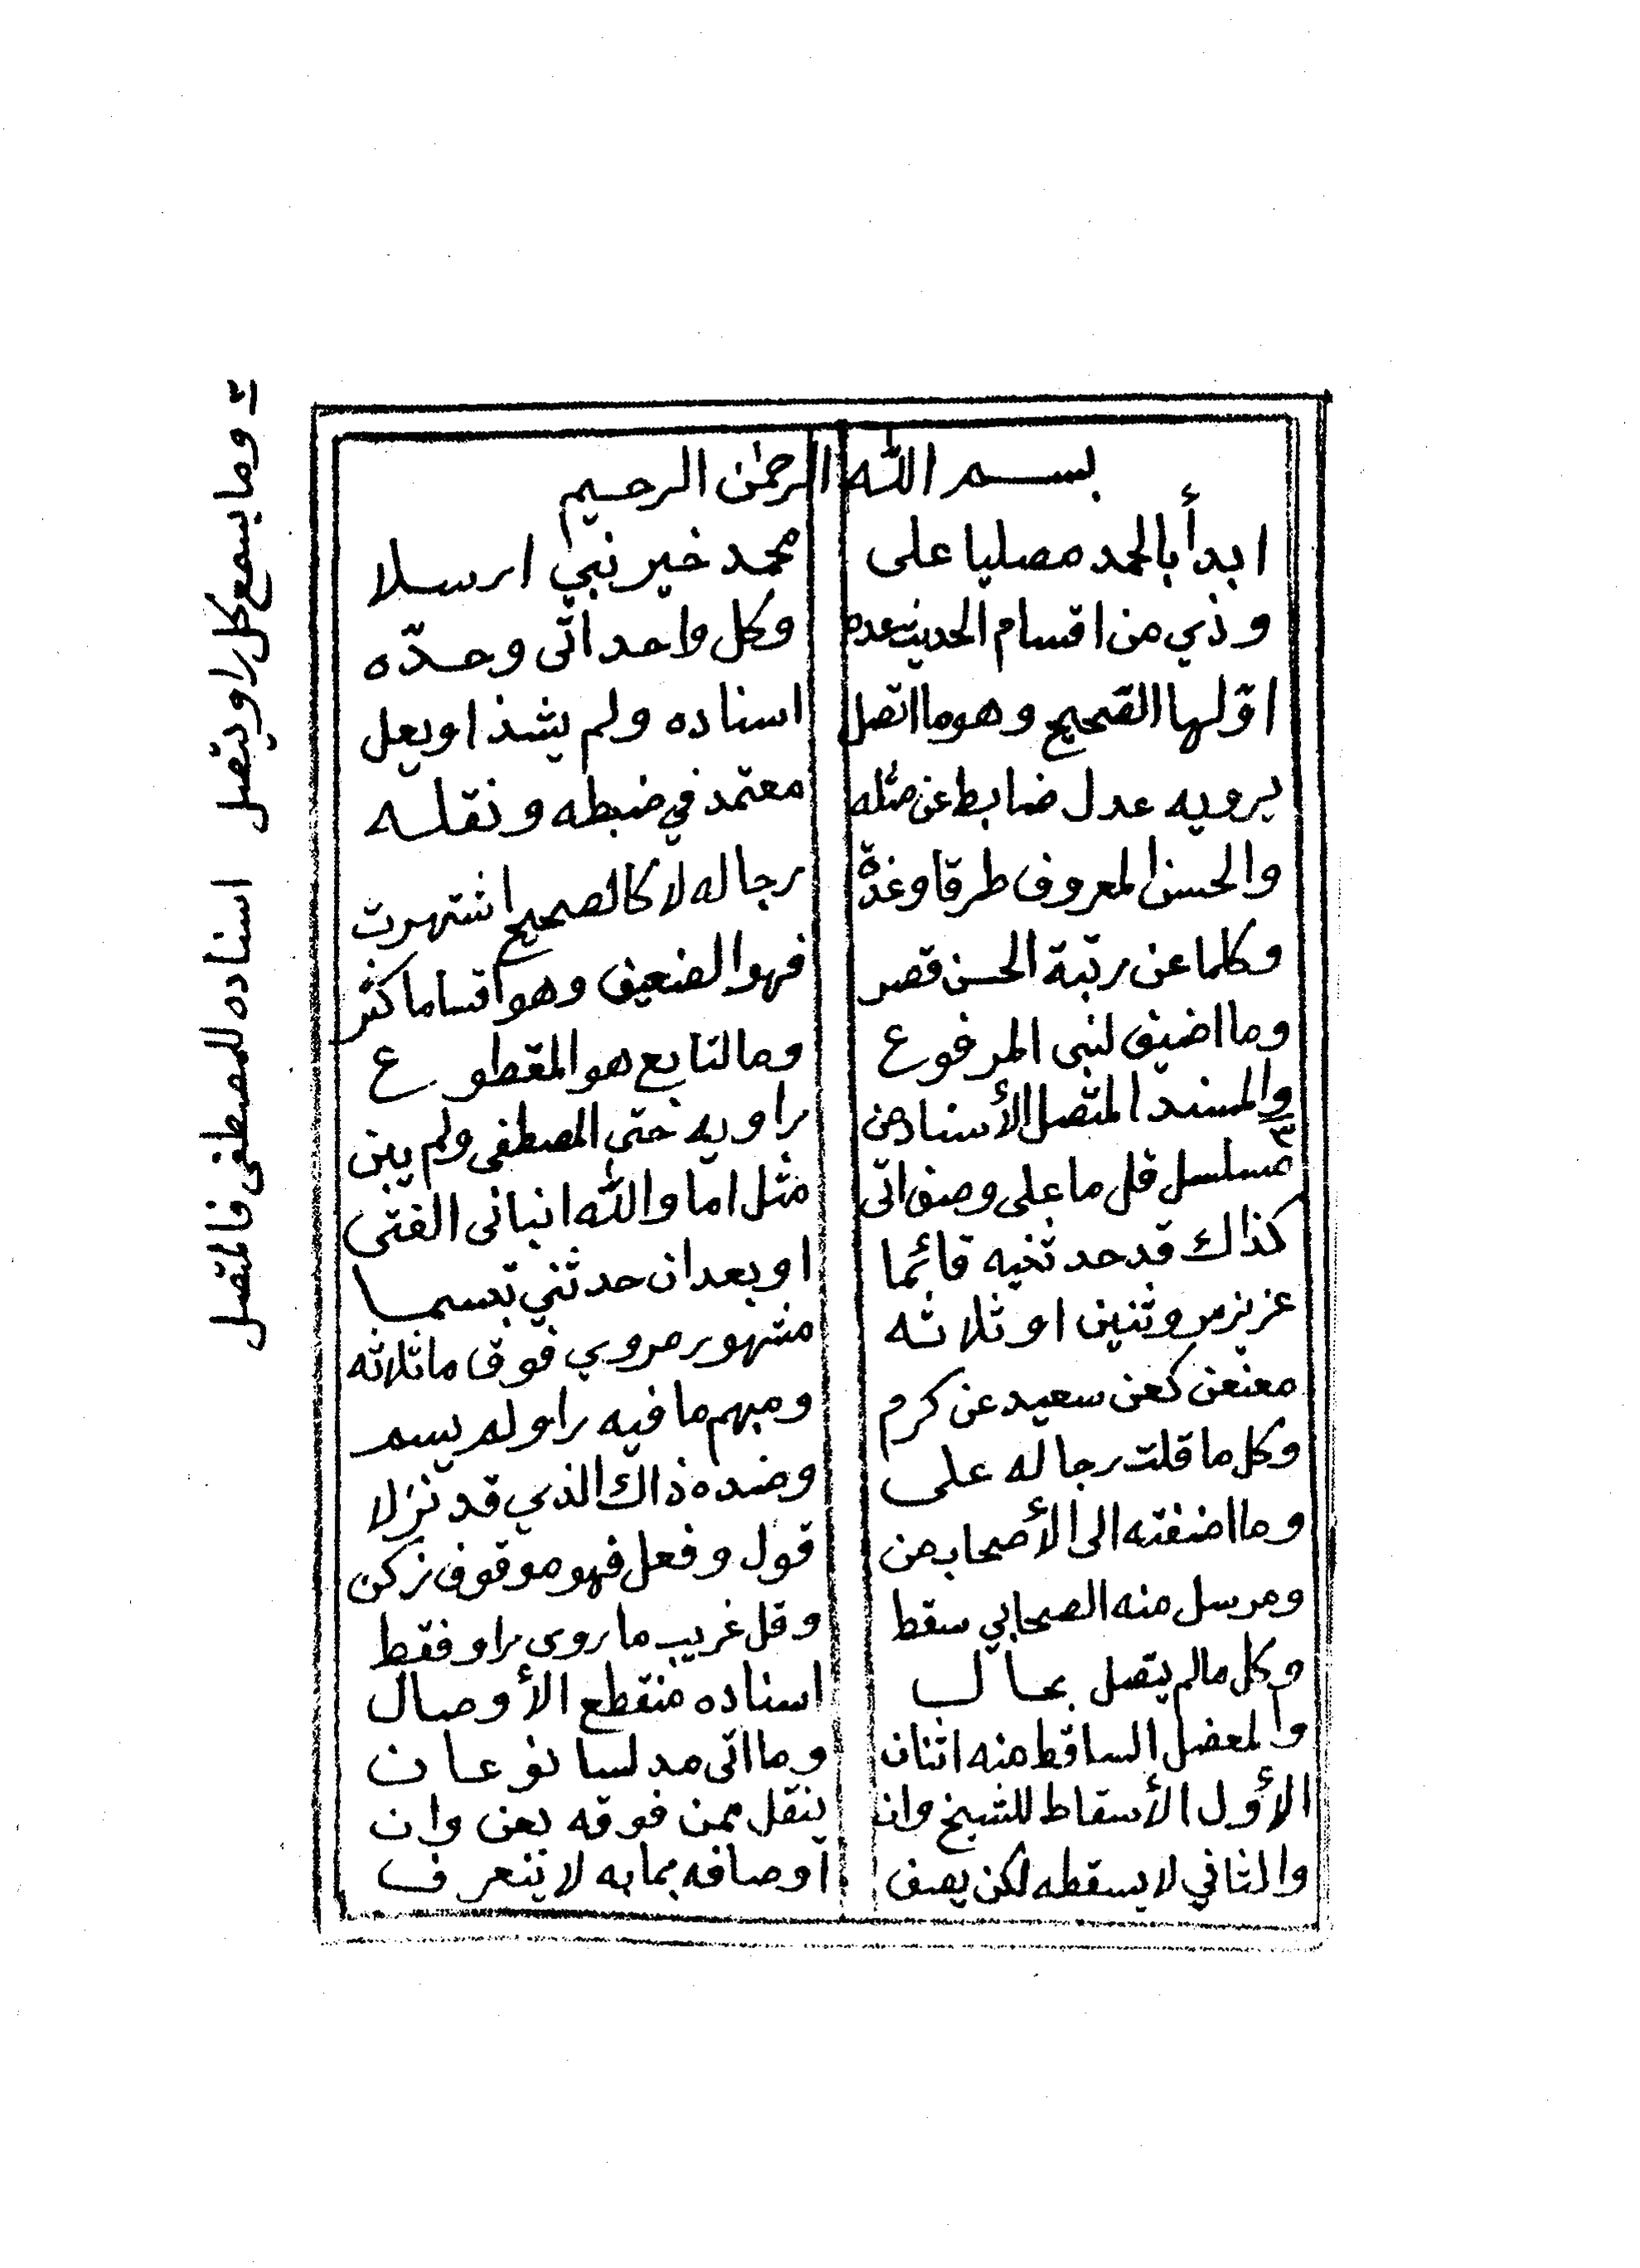 بسم الله الرحمٰن الرحيم
ابدأ بالحمد مصليا على محمد خير نبي ارسلا
وذي من اقسام الحديث عده وكل واحد اتى وحدّه
اوّلها الصّحيح وهو ما اتصل اسناده ولم يشذ او يعل
يرويه عدل ضابط عن مثله معتمد في ضبطه ونقله
والحسن المعروف طرقا وغدة رجاله لا كالصحيح اشتهرت
وكلما عن رتبة الحسن قصر فهو الضعيف وهو اقساما كثر
وما اضيف لنبى المرفوع وما لتابع هو المقطوع
والمسند المتصل الأسناد من راويه حتى المصطفى ولم يبن
مسلسل قل ما على وصف اتى مثل اما والله انبانى الفتى
كذاك قد حدثنيه قائما او بعد ان حدثني تبسما
عزيز مروثنين او ثلاثه مشهور مروي فوق ما ثلاثه
معنعن كعن سعيد عن كرم ومبهم ما فيه راو لم يسم
وكل ما قلت رجاله على وضده ذاك الذي قد نزلا
وما اضفته الى الأصحاب من قول وفعل فهو موقوف زكن
ومرسل منه الصحابي سقط وقل غريب ما روى راو فقط
وكل ما لم يتصل بحال اسناده منقطع الأوصال
والمعضل الساقط منه اثنان وما اتى مدلسا نوعان
الأول الأسقاط للشيخ وان ينقل ممن فوقه بعن وان
والثاني لا يسقطه لكن يصف اوصافه بما به لا ينعرف
وما بسمع كل راو يتصل اسناده للمصطفى فالمتصل